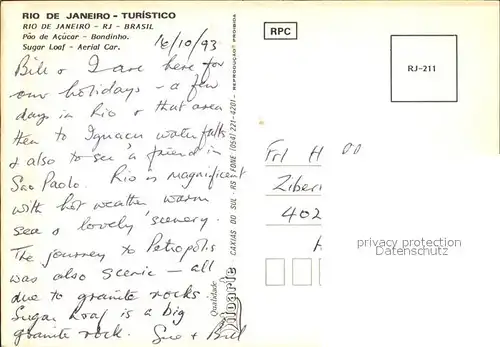 RIO DE JANEIRO - TURÍSTICO
RIO DE JANEIRO - RJ - BRASIL
Pão de Açúcar - Bondinho.
Sugar Loaf - Aerial Car.
16/10/93
Bill & I are here for
our holidays - a few
days in Rio & that area
then to Ignacu waterfalls
& also to see a friend in
Sao Paolo. Rio is magnificent
with hot weather warm
sea & lovely scenery.
The journey to Petropolis
was also scenic - all
due to granite rocks.
Sugar Loaf is a big
granite rock. Sue + Bill
Qualidade
CAXIAS DO SUL - RS - FONE (054) 221-4201 - REPRODUÇÃO PROIBIDA
RPC
RJ-211
Frl H
Ziberi
402
privacy protection